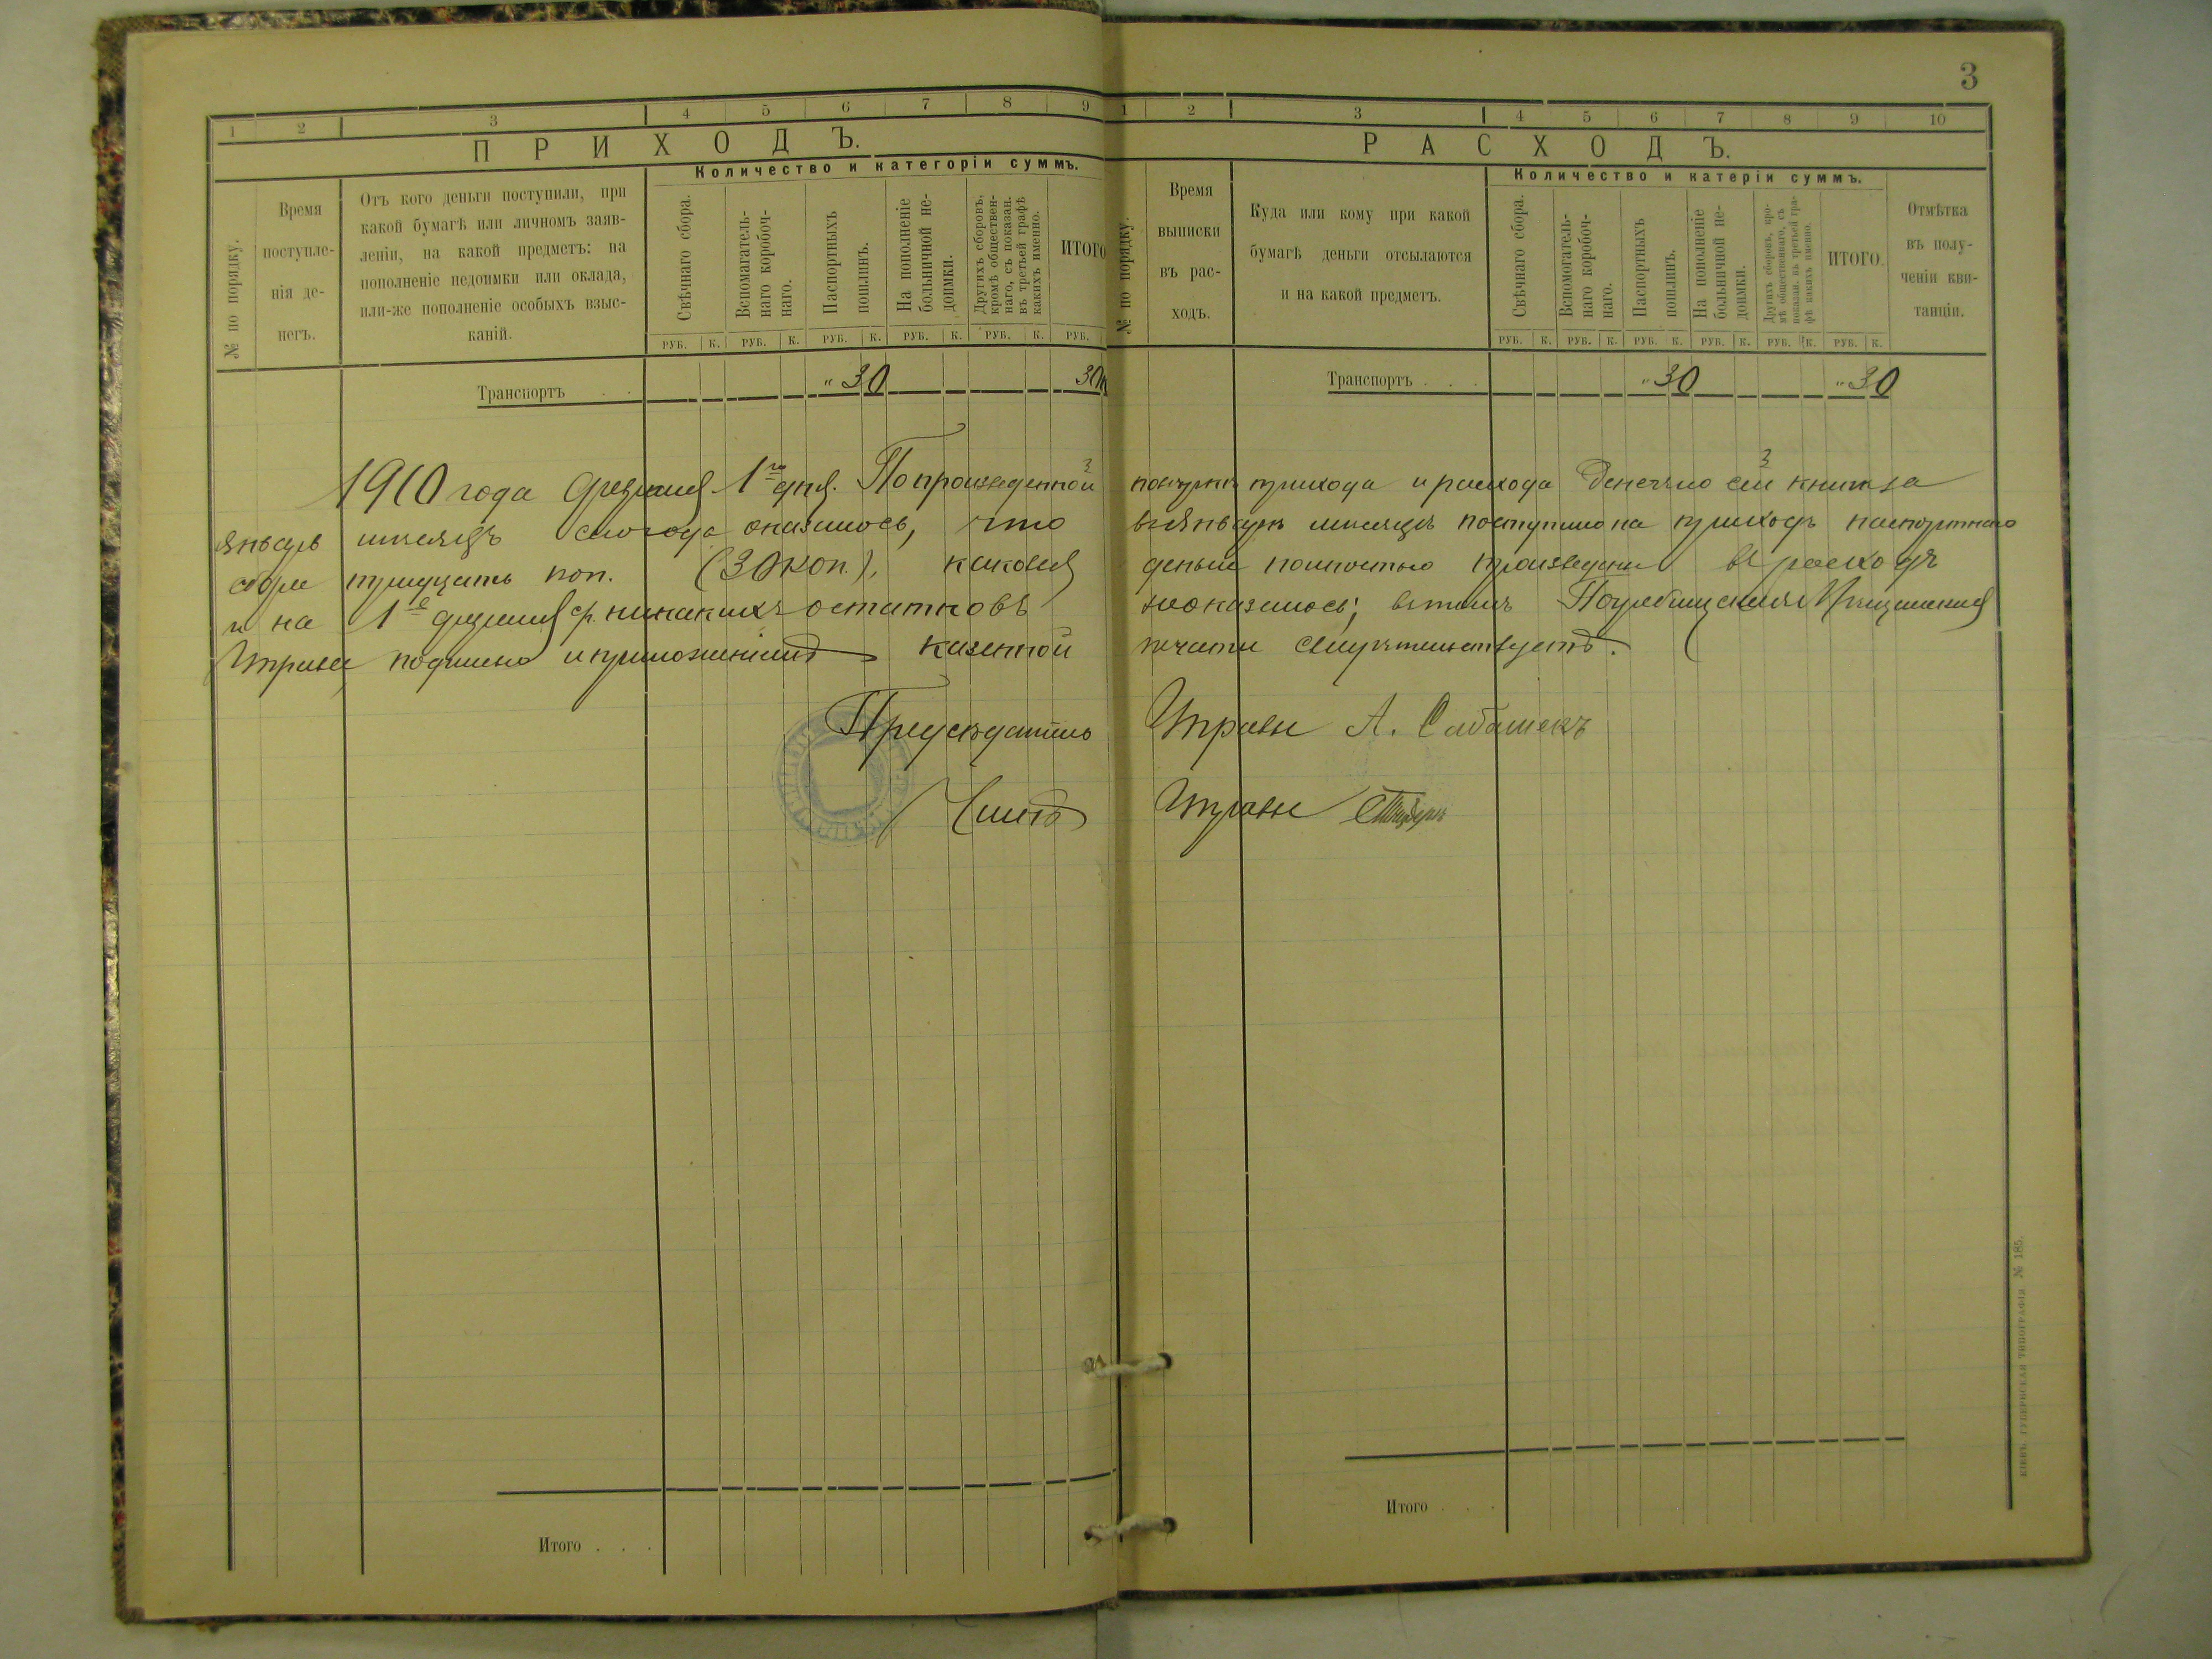 3
1 2 3 4 5 6 7 8 9
ПРИХОДЪ.
Количество и категоріи суммъ.
№ по порядку.
Время
поступле-
нія де-
негъ.
Отъ кого деньги поступили, при
какой бумагѣ или личномъ заяв-
леніи, на какой предметъ: на
пополненіе недоимки или оклада,
или-же пополненіе особыхъ взыс-
каній.
Свѣчнаго сбора.
Вспомагатель-
наго коробоч-
наго.
Паспортныхъ
пошлинъ.
На пополненіе
больничной не-
доимки.
Другихъ сборовъ,
кромѣ обществен-
наго, съ показан.
въ третьей графѣ
какихъ именно.
ИТОГО
РУБ. К. РУБ. К. РУБ. К. РУБ. К. РУБ. К. РУБ.
Транспортъ . . „ 30 30
1 2 3 4 5 6 7 8 9 10
РАСХОДЪ.
Количество и катеріи суммъ.
№ по порядку.
Время
выписки
въ рас-
ходъ.
Куда или кому при какой
бумагѣ деньги отсылаются
и на какой предметъ.
Свѣчнаго сбора.
Вспомогатель-
наго коробоч-
наго.
Паспортныхъ
пошлинъ.
На пополненіе
больничной не-
доимки.
Другихъ сборовъ, кро-
мѣ общественнаго, съ
показан. въ третьей гра-
фѣ какихъ именно.
ИТОГО.
Отмѣтка
въ полу-
ченіи кви-
танціи.
РУБ. К. РУБ. К. РУБ. К. РУБ. К. РУБ. К. РУБ. К.
Транспортъ . . . „ 30 „ 30
1910 года февраля 1го дня. По произведенной повѣркѣ прихода и расхода денегъ по сей книгѣ за
январь мѣсяцъ сего года оказалось, что въ январѣ мѣсяцѣ поступило на приходъ паспортнаго
сбора тридцать коп. (30 коп.), каковыя деньги полностью произведены въ расходъ
и на 1е февраля с.г. никакихъ остатковъ не оказалось; въ томъ Погребищенская Мѣщанская
Управа подписью и приложеніемъ казенной печати свидѣтельствуетъ.
Предсѣдатель Управы А.
Членъ Управы
Итого . . .
Итого . . .
КІЕВЪ. ГУБЕРНСКАЯ ТИПОГРАФІЯ № 185.